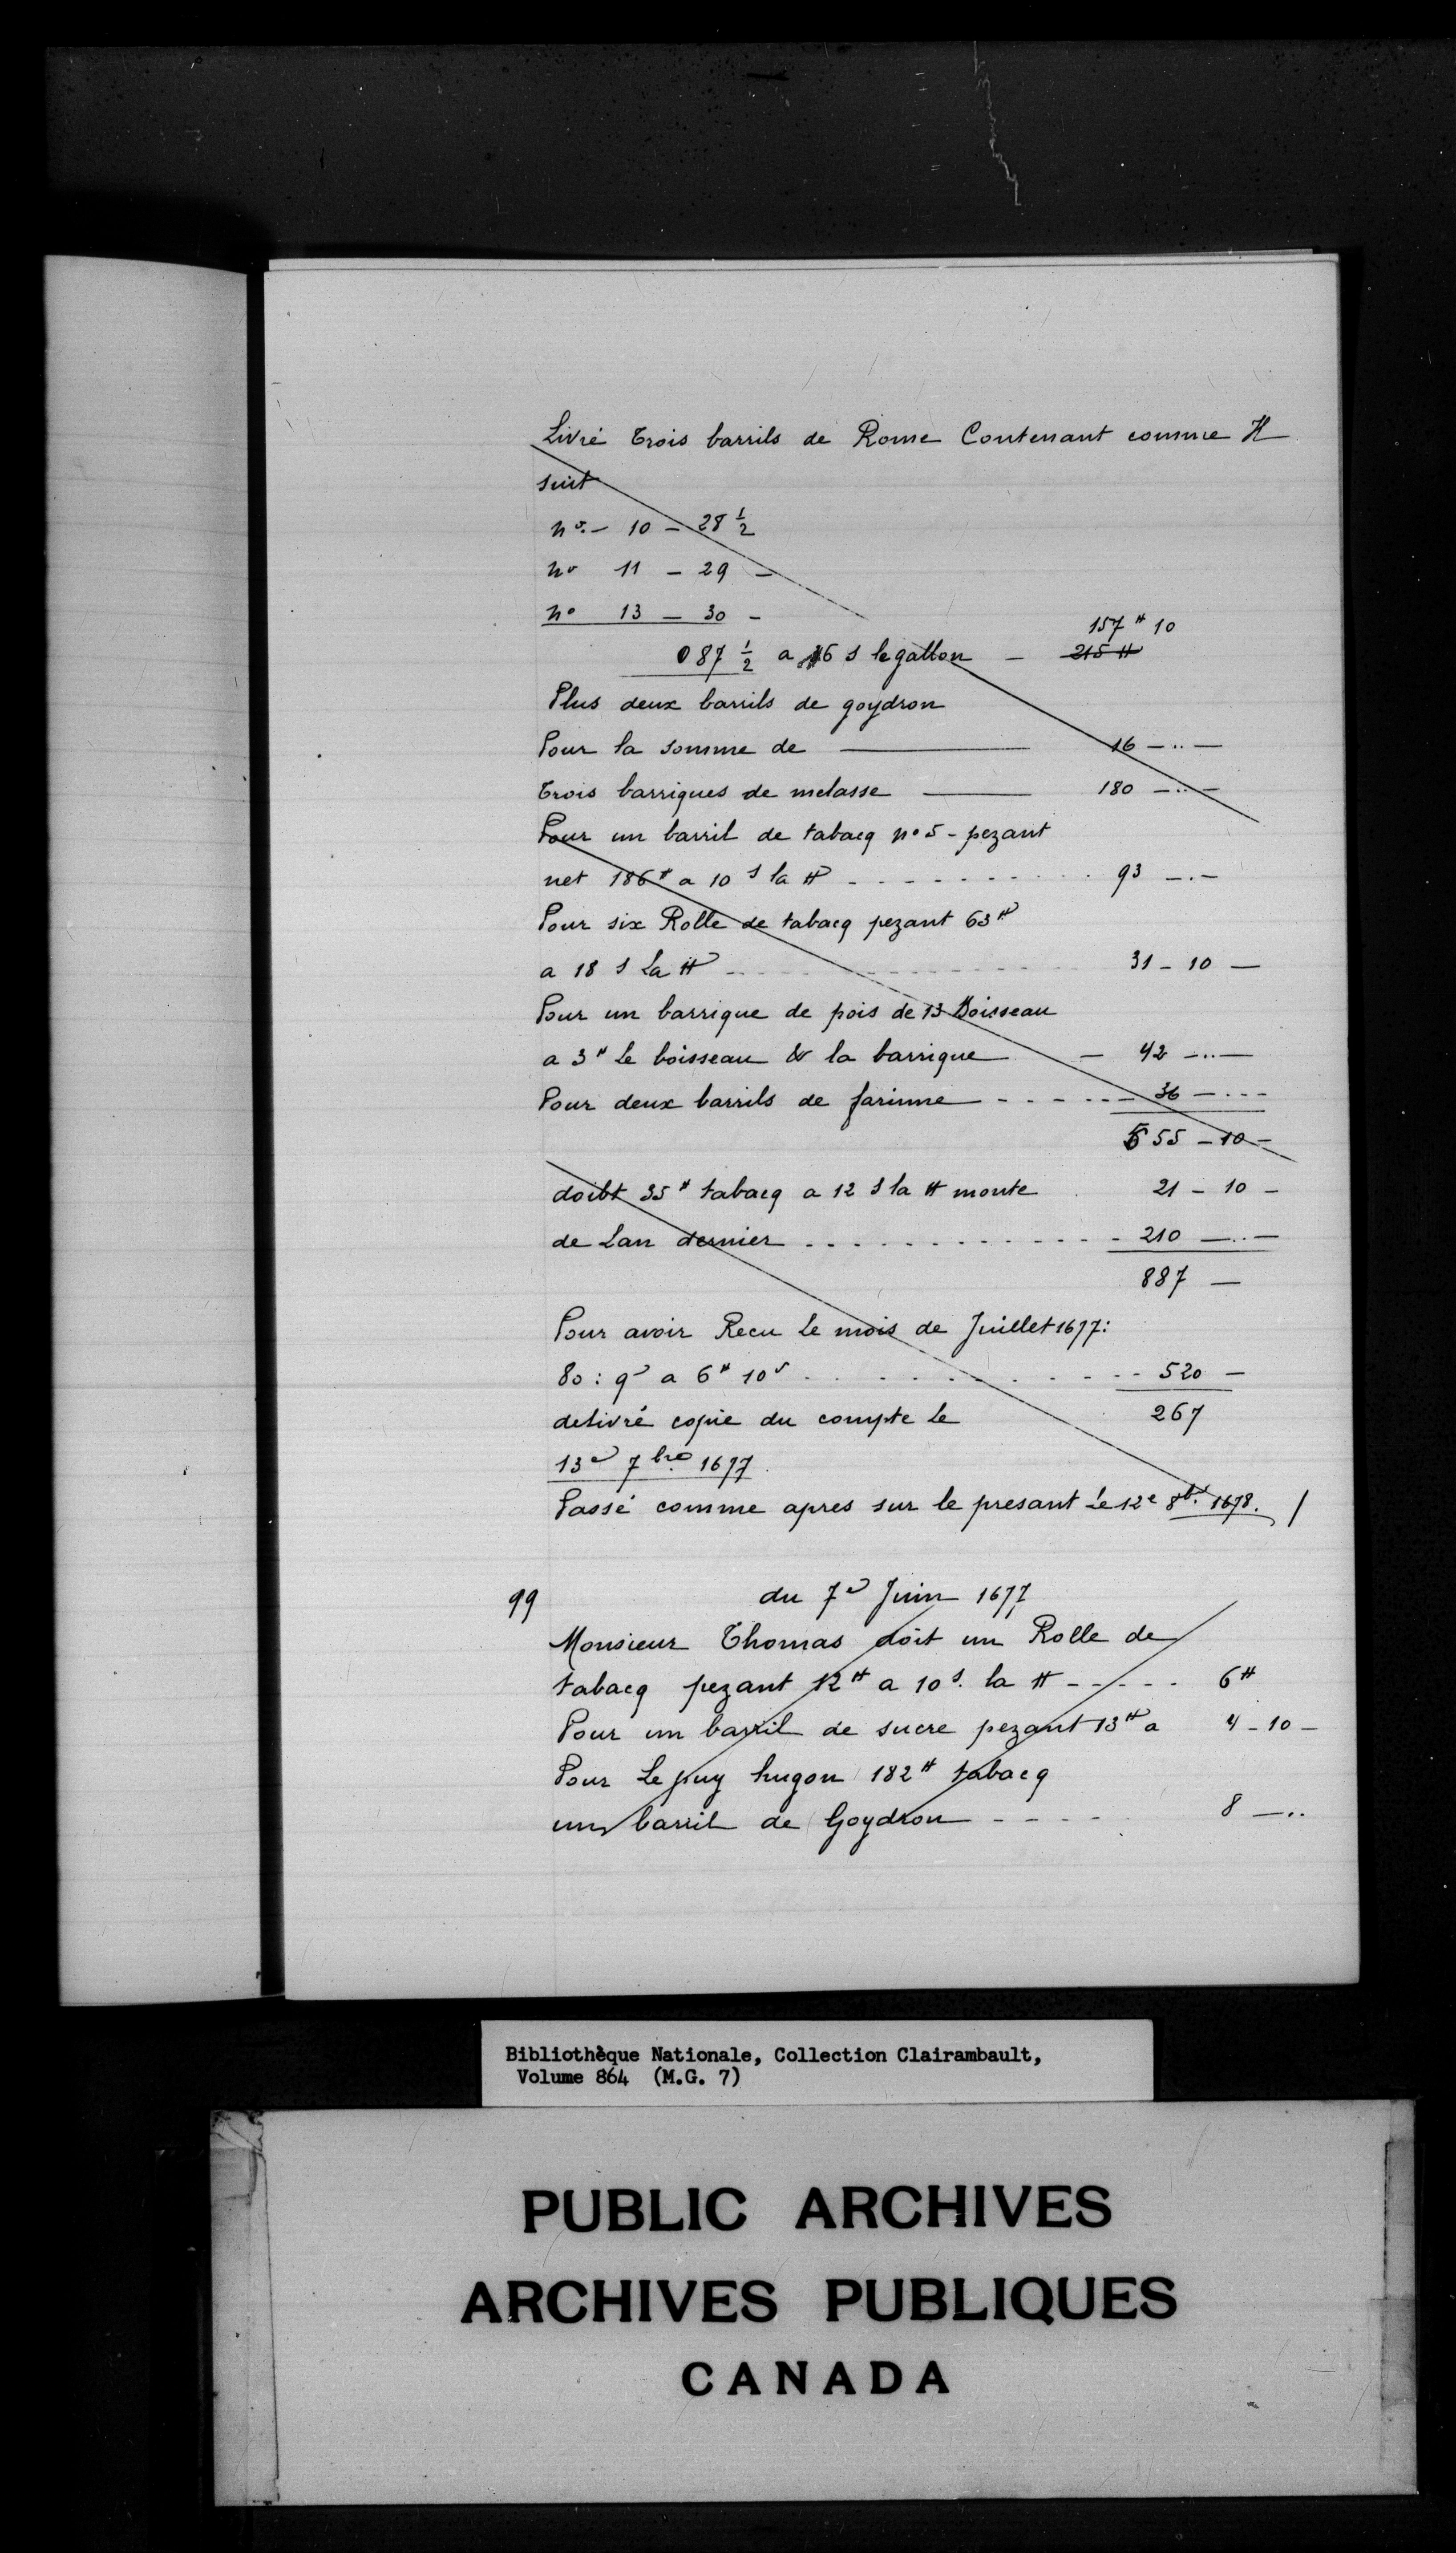 Livré trois barrils de Rome Contenant comme H
suit
no. - 10 - 28 1/2
no 11 - 29 -
no 13 - 30 -
157 # 10
087 1/2 a 16 s le gallon - 215 #
Plus deux barrils de goydron
Pour la somme de 16 -..-
trois barriques de melasse 180 -..-
Pour un barril de tabacq no 5 - pezant
net 186# a 10 s la # - - - - - - - - 93 -.-
Pour six Rolle de tabacq pezant 63#
a 18 s La # - - - - - - - - - - 31 - 10 -
Pour un barrique de pois de 13 Boisseau
a 3# Le boisseau & la barrique - 42 -..-
Pour deux barrils de farinne - - - - - 36 - ...
555 - 10 -
doibt 35# tabacq a 12 s la # monte 21 - 10 -
de Lan dernier . . . . . . . . . . . 210 -..-
887 -
Pour avoir Recu Le mois de Juillet 1677:
80 : q a 6# 10s . . . . . . . . . 520 -
delivré copie du compte Le 267
13e 7bre 1677
Passé comme apres sur le presant Le 12e 8b. 1678. /
99 du 7e Juin 1677
Monsieur Thomas doit un Rolle de
tabacq pezant 12# a 10s. la # - - - - - 6#
Pour un barril de sucre pezant 13# a 4 - 10 -
Pour Le puy hugon 182# tabacq
un barril de Goydron - - - - 8 -..
Bibliothèque Nationale, Collection Clairambault,
Volume 864 (M.G. 7)
PUBLIC ARCHIVES
ARCHIVES PUBLIQUES
CANADA